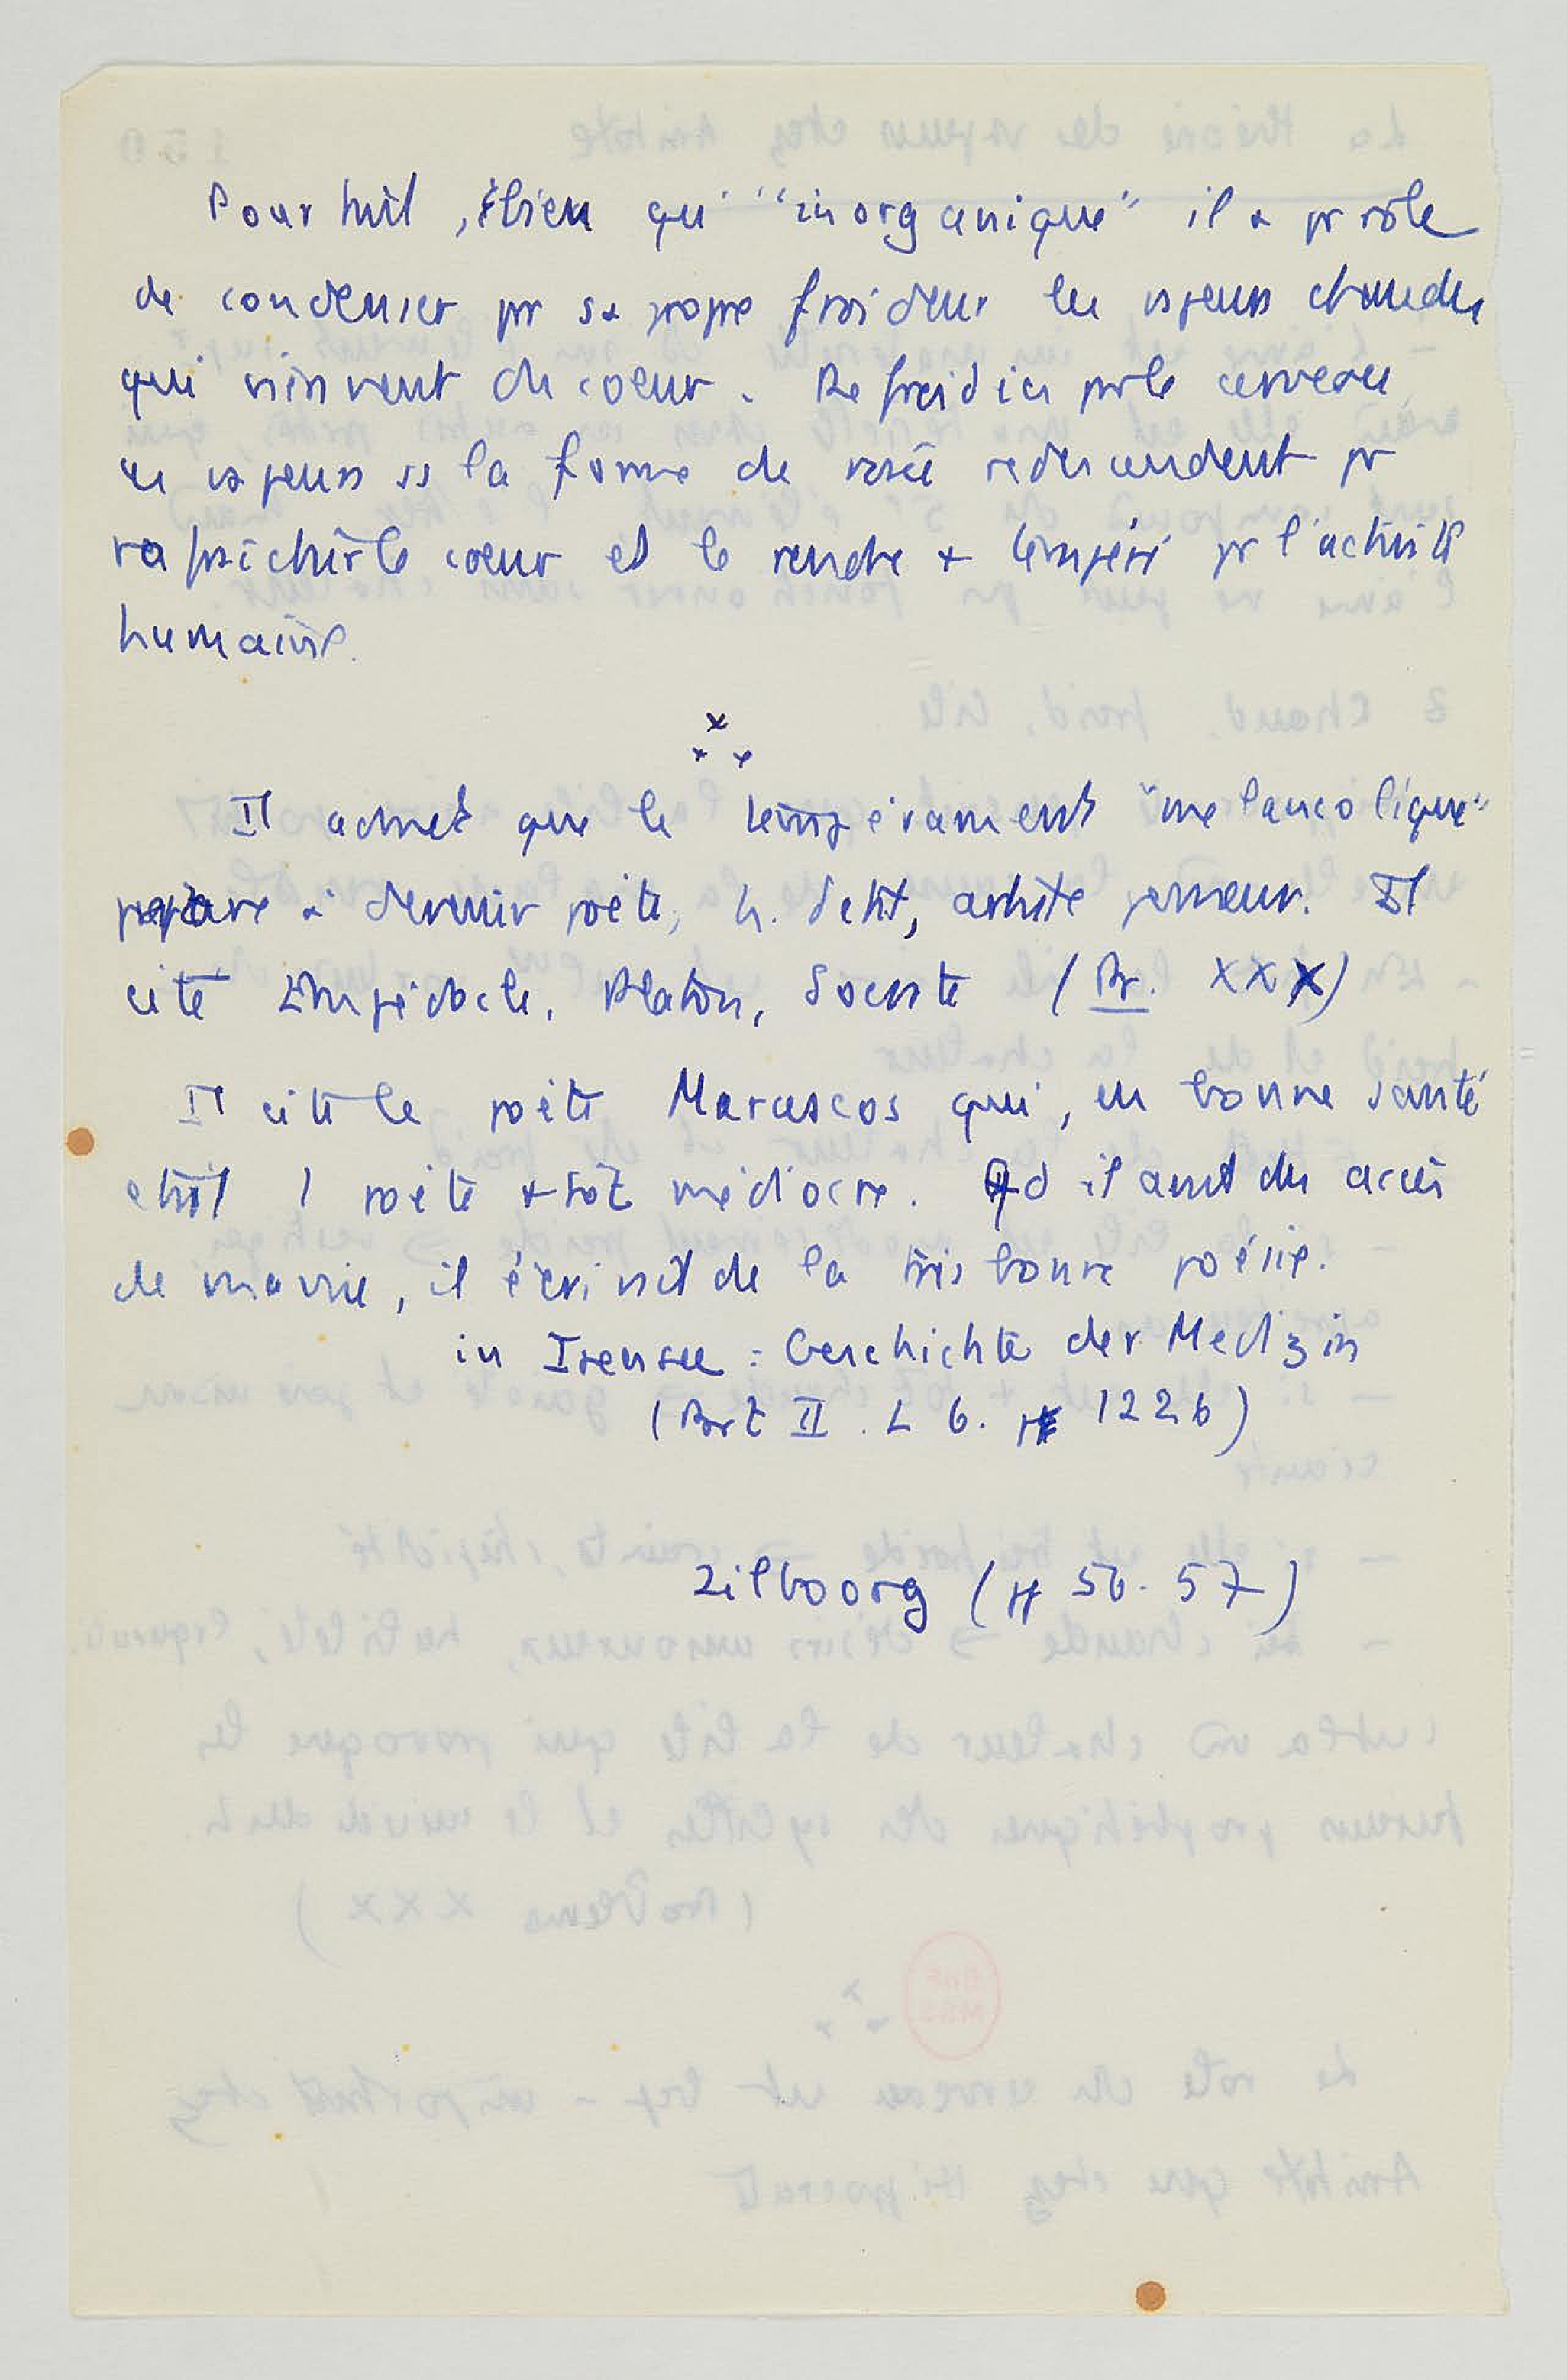 Pour tant, bien qu' "inorganique" il a pr rôle
de condenser pr sa propre froideur les vapeurs chaudes
qui viennent du coeur. Refroidies par le cerveau
les vapeurs ss la forme de rosée redescendent pr
rafraichir le coeur et le rendre + tempéré pr l'activité
humaine.
x
x x
Il admet que le tempérament "melancolique"
prépare à devenir poète, h. d'état, artiste penseur. Il
cite Empédocle, Platon, Socrate (Pr. XXX)
Il cite le poète Maracos qui, en bonne santé
était 1 poète + tôt médiocre. Qd il avait des accès
de manie, il écrivait de la très bonne poésie.
in Isensee : Geschichte der Medizin
(Part II. L 6. p 1226)
Zilboorg (pp 56-57)